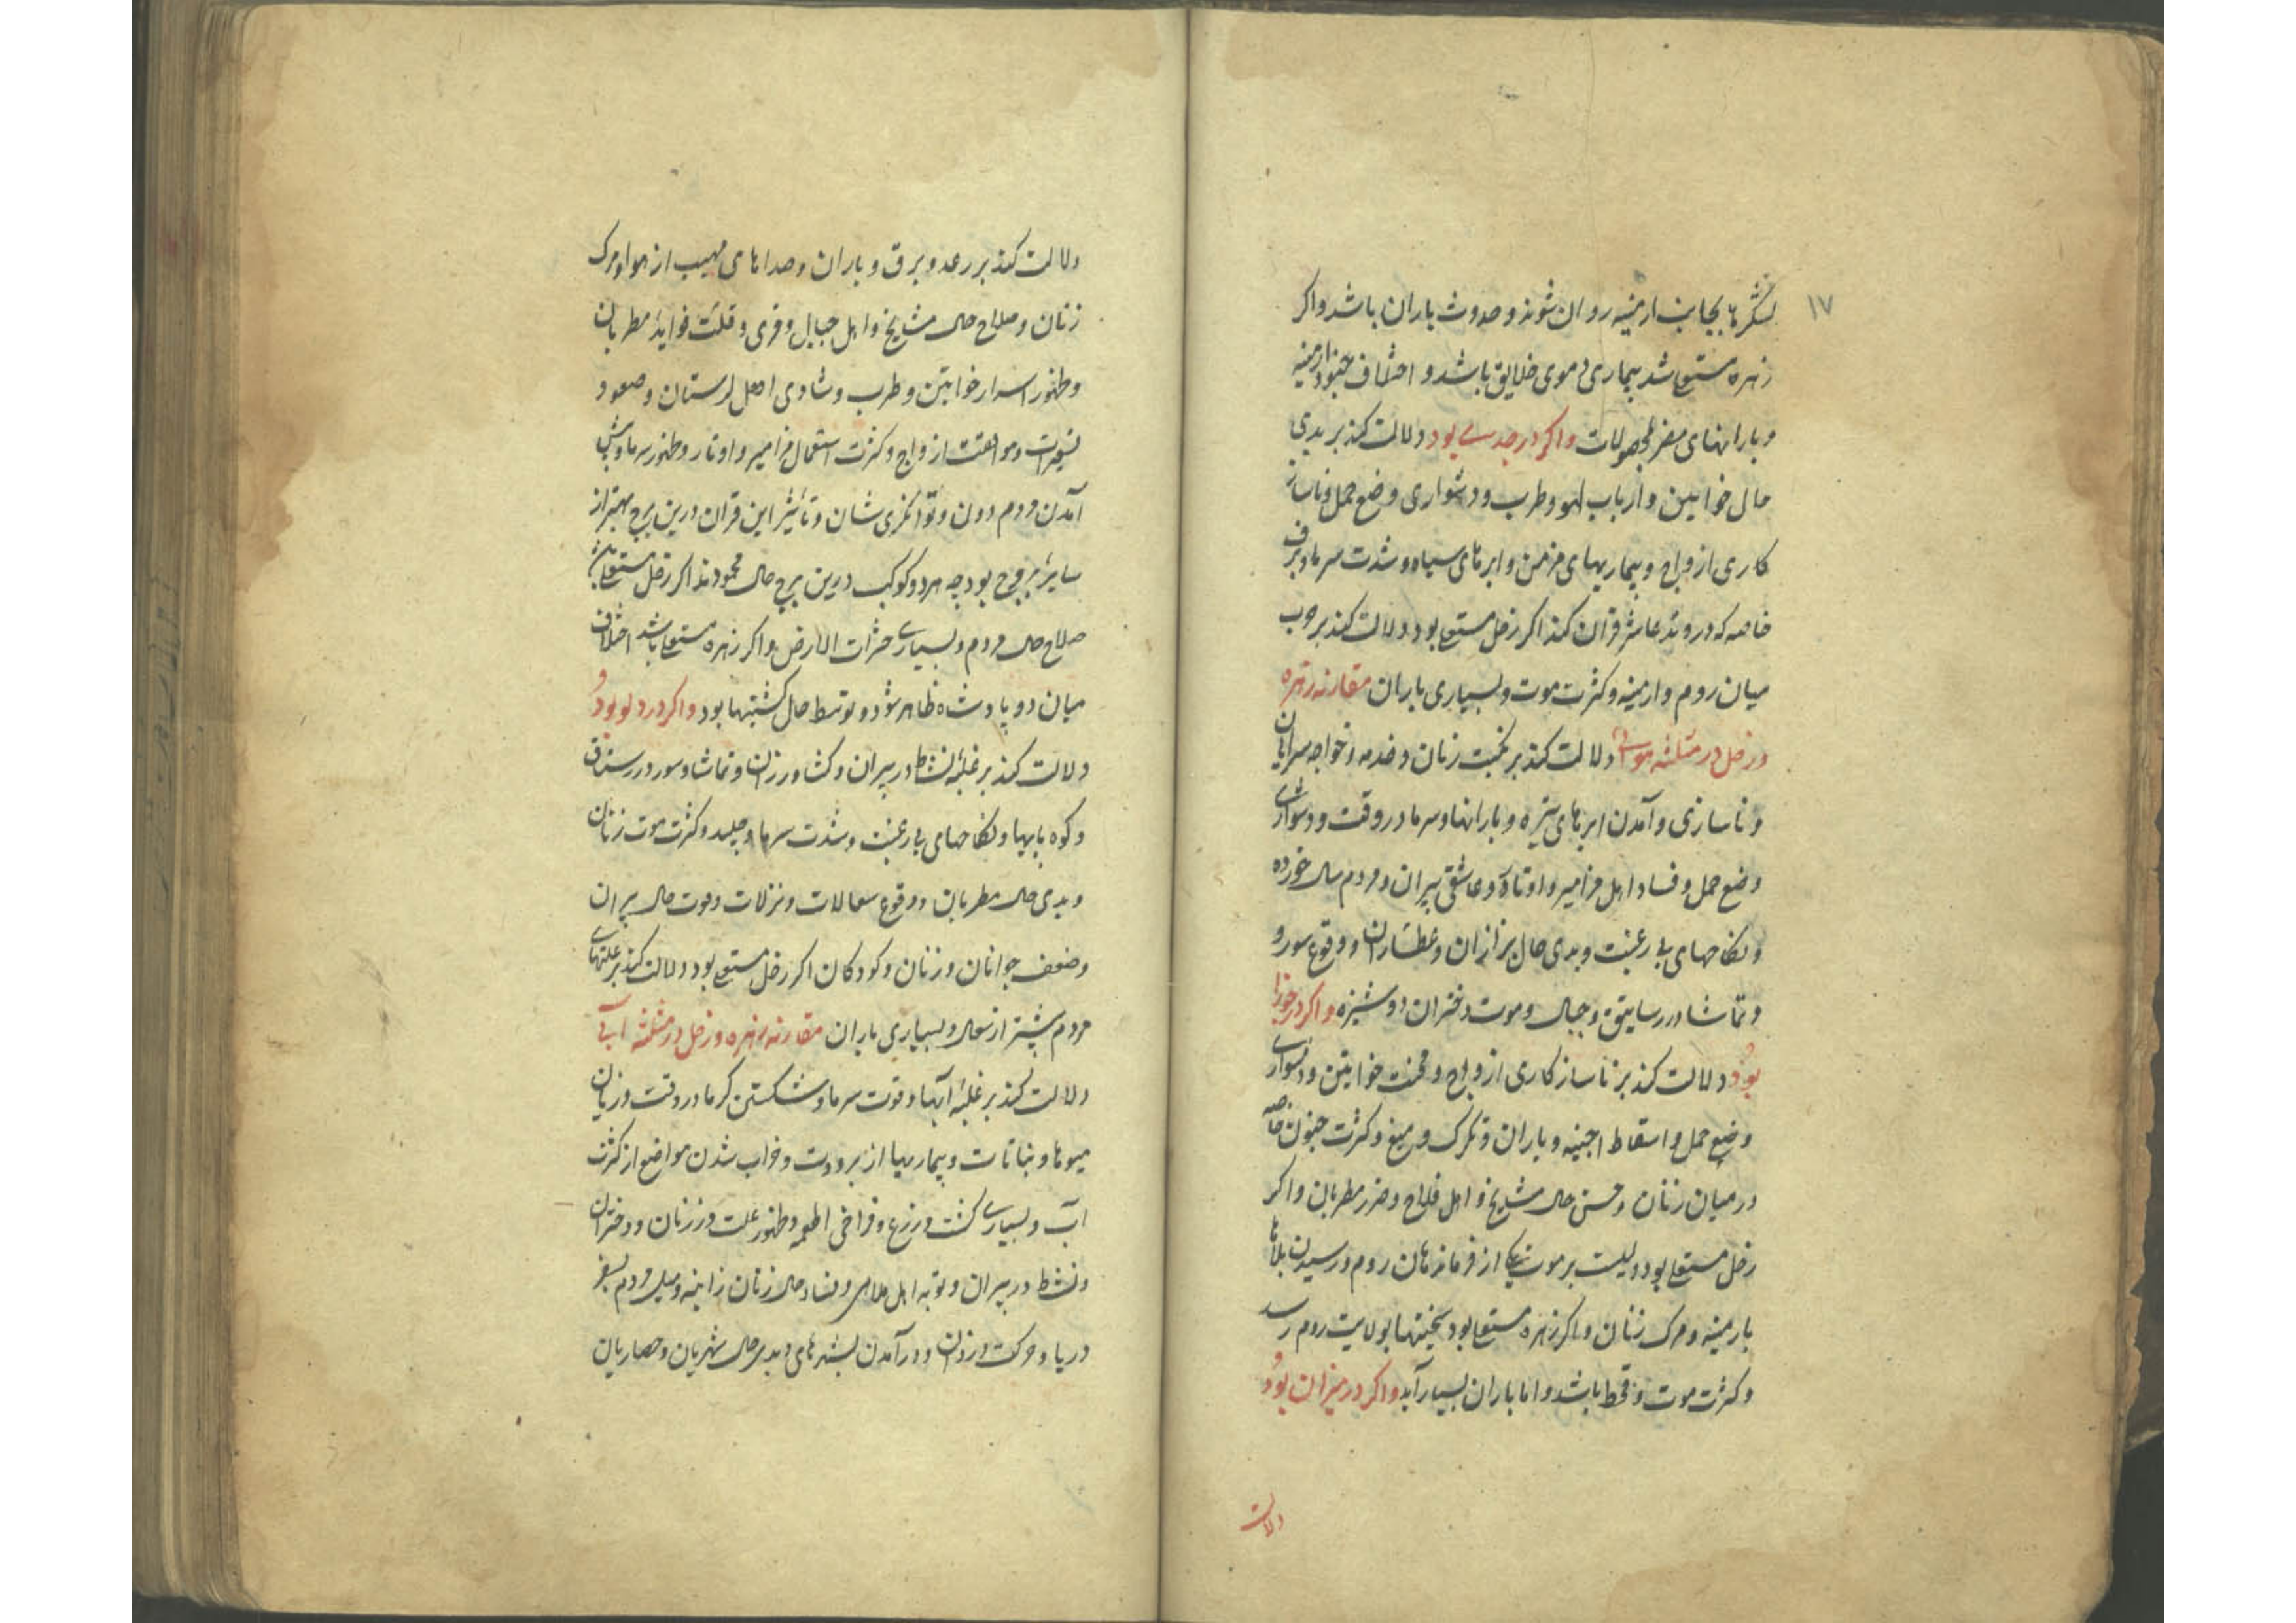 ۱۷
لشکرها بجانب ارمینه روان شوند و حدوث باران باشد و اکر
زهره مستعلی باشد بیماری دموی خلایق باشد و اختلاف جنود ارمینه
و بارانهای مضر بمحصولات و اکر در جدی بود دلالت کند بر بدی
حال خواتین و ارباب لهو و طرب و دشواری وضع حمل و ناساز
کاری ازواج و بیماریهای مزمن و ابرهای سیاه و شدت سرما و برف
خاصه که در وتد عاشر قران کند اکر زحل مستعلی بود دلالت کند بر حرب
میان روم و ارمینه و کثرت موت و بسیاری باران مقارنه زهره
و زحل در مثلثه هوایی دلالت کند بر نکبت زنان و خدمه و خواجه سرایان
و ناسازی و آمدن ابرهای تیره و بارانها و سرما در وقت و دشواری
وضع حمل و فساد اهل مزامیر و اوتار و عاشقی پیران و مردم سال خورده
و نکاحهای بی رغبت و بدی حال بزازان و عطاران و وقوع سور و
و تماشا در رساتیق و جبال و موت دختران دوشیزه و اکر در جوزا
بود دلالت کند بر ناسازکاری ازواج و محنت خواتین و دشواری
وضع حمل و اسقاط اجنه و باران و تکرک و میغ و کثرت جنون خاصه
در میان زنان و حسن حال مشایخ و اهل فلاح و ضرر مطربان و اکر
زحل مستعلی بود دلیست بر موت یکی از فرماندهان روم و رسیدن بلاها
بارمینه و مرک زنان و اکر زهره مستعلی بود سختیها بولایت روم رسد
و کثرت موت و قحط باشد و اما باران بسیار آید و اکر در میزان بود
دلالت
دلالت کند بر رعد و برق و باران و صداهای مهیب از هوا و مرک
زنان و صلاح حال مشایخ و اهل جبال و قری و قلت فواید مطربان
و ظهور اسرار خواتین و طرب و شادی اهل لرستان و صعود و
نیرات و موافقت ازواج و کثرت استعمال مزامیر و اوتار و ظهور سرما و پیش
آمدن مردم دون و توانکری شان و تاثیر این قران درین برج بهتر از
سایر بروج بود چه هر دو کوکب درین برج حال محمودند اکر زحل مستعلی باشد
صلاح حال مردم و بسیاری حشرات الارض و اکر زهره مستعلی باشد اختلاف
میان دو پادشاه ظاهر شود و توسط حال کشتیها بود و اکر در دلو بود
دلالت کند بر غلبه نشاط در پیران و کشاورزان و تماشا و سور در رستاق
و کوه پایها و نکاحهای بی رغبت و شدت سرما و جلید و کثرت موت زنان
و بدی حال مطربان و وقوع سعالات و نزلات و قوت حال پیران
و ضعف جوانان و زنان و کودکان اکر زحل مستعلی بود دلالت کند بر علتهای
مردم بیشتر از سعال و بسیاری باران مقارنه زهره و زحل در مثلثه آبی
دلالت کند بر غلبه آبها و قوت سرما و شکستن کرما در وقت و زیان
میوها و نباتات و بیماریها از برودت و خراب شدن مواضع از کثرت
آب و بسیاری کشت و زرع و فراخی اطعمه و ظهور علت در زنان و دختران
و نشاط در پیران و توبه اهل ملاهی و فساد حال زنان زانیه و میل مردم بسفر
دریا و حرکت دزدان و در آمدن بشهرهای و بدی حال شهریان و حصاریان